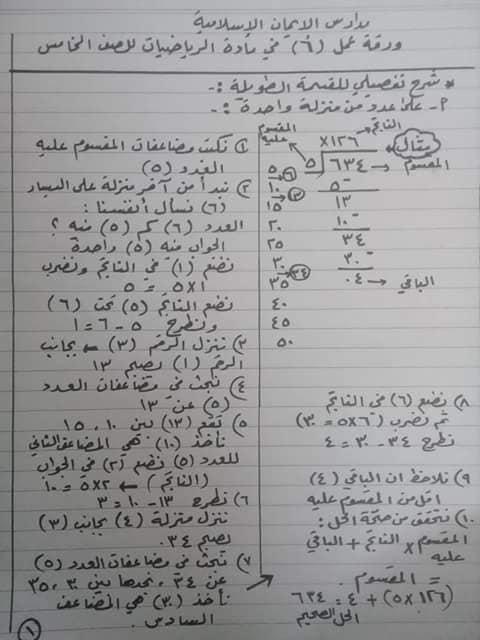 مدارس الإيمان الإسلامية
ورقة عمل (٦) في مادة الرياضيات للصف الخامس
* شرح تفصيلي للقسمة الطويلة :-
٢- على عدد من منزلة واحدة :-
① نكتب مضاعفات المقسوم عليه
العدد (٥)
② نبدأ من آخر منزلة على اليسار
(٦) نسأل أنفسنا :
العدد (٦) كم (٥) فيه ؟
الجواب فيه (٥) واحدة
نضع (١) في الناتج ونضرب
١×٥ = ٥
نضع الناتج (٥) تحت (٦)
ونطرح ٦ - ٥ = ١
③ ننزل الرقم (٣) ← بجانب
الرقم (١) يصبح ١٣
④ نبحث في مضاعفات العدد
(٥) عن ١٣
⑤ تقع (١٣) بين ١٠ ، ١٥
نأخذ (١٠) فهي المضاعف الثاني
للعدد (٥) نضع (٢) في الجواب
(الناتج) ← ٢×٥ = ١٠
⑥ نطرح ١٣ - ١٠ = ٣
ننزل منزلة (٤) بجانب (٣)
يصبح ٣٤
⑦ نبحث في مضاعفات العدد (٥)
عن ٣٤ ، نجدها بين ٣٠ ، ٣٥
نأخذ (٣٠) فهي المضاعف
السادس .
مثال
الناتج
المقسوم عليه
×١٢٦
٥ ٦٣٤ → المقسوم
٥
١٣
١٠
٣٤
٣٠
٠٤ → الباقي
٥
٦
١٠
١٣
١٥
٢٠
٢٥
٣٠
٣٤
٣٥
٤٠
٤٥
٥٠
٨) نضع (٦) في الناتج
ثم نضرب (٦×٥ = ٣٠)
نطرح ٣٤ - ٣٠ = ٤
٩) نلاحظ ان الباقي (٤)
اقل من المقسوم عليه
١٠) نتحقق من صحة الحل :
المقسوم عليه × الناتج + الباقي
= المقسوم .
(١٢٦×٥) + ٤ = ٦٣٤
الحل الصحيح
①